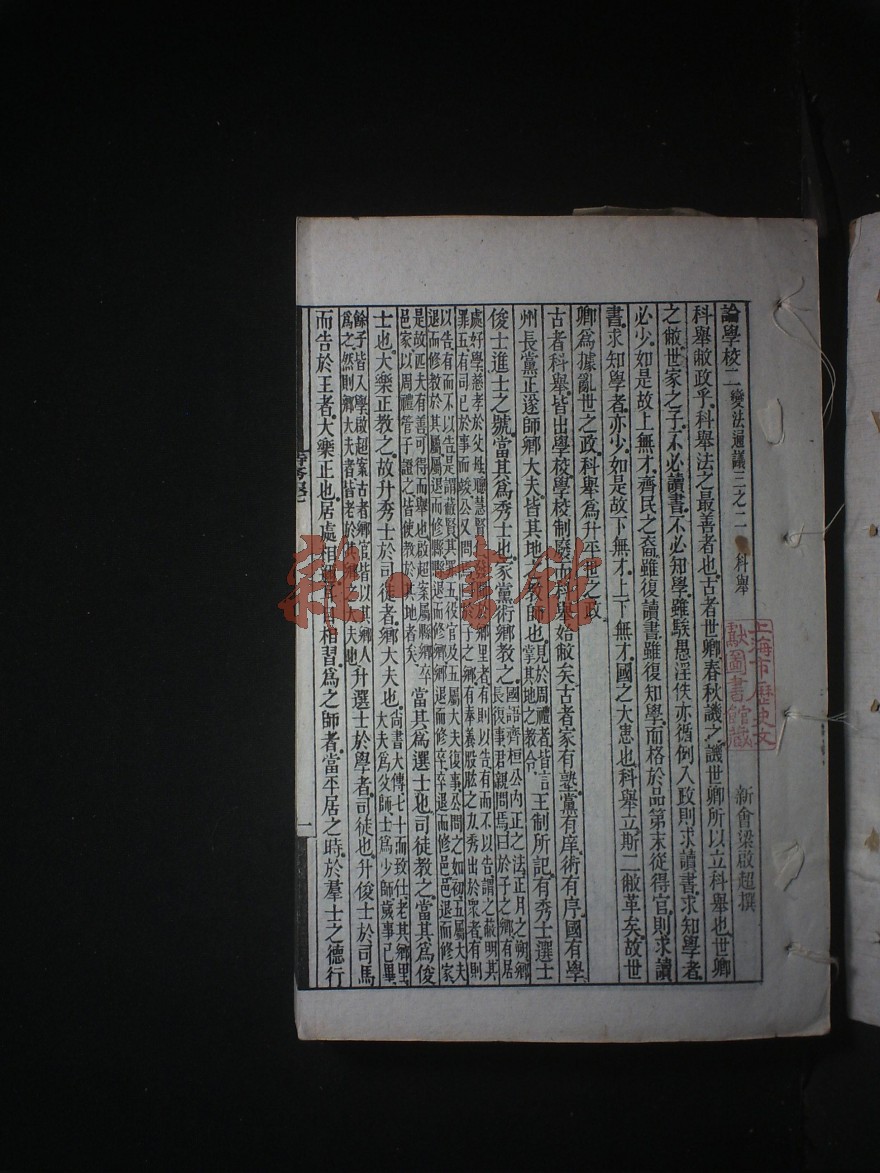 論學校二 變法通議三之二 科舉 新會梁啟超撰
科舉敝政乎科舉法之最善者也古者世卿春秋譏之譏世卿所以立科舉也世卿
之敝世家之子不必讀書不必知學雖騃愚淫佚亦循例入政則求讀書求知學者
必少如是故上無才齊民之裔雖復讀書雖復知學而格於品第末從得官則求讀
書求知學者亦少如是故下無才上下無才國之大患也科舉立斯二敝革矣故世
卿爲據亂世之政科舉爲升平世之政
古者科舉皆出學校學校制廢而科舉始敝矣古者家有塾黨有庠術有序國有學
州長黨正遂師鄉大夫皆其地之教師也見於周禮者皆言掌其地之教令王制所記有秀士選士
俊士進士之號當其爲秀士也家黨術鄉教之國語齊桓公內正之法正月之朔鄉長復事君親問焉曰於子之鄉有居
處好學慈孝於父母聰慧質仁發聞於鄉里者有則以告有而不以告謂之蔽明其
罪五有司已於事而竣公又問焉曰於子之鄉有拳勇股肱之力秀出於衆者有則
以告有而不以告是謂蔽賢其罪五役官及五屬大夫復事公問之如初五屬大夫
退而修教於其屬屬退而修縣縣退而修鄉鄉退而修卒卒退而修邑邑退而修家
是故匹夫有善可得而舉也啟超案屬縣鄉卒
邑家以周禮管子證之皆使教於其地者矣當其爲選士也司徒教之當其爲俊
士也大樂正教之故升秀士於司徒者鄉大夫也尚書大傳七十而致仕老其鄉里大夫爲父師士爲少師歲事已畢
餘子皆入學啟超案古者鄉官皆以其鄉人
爲之然則鄉大夫者皆老於其鄉之大夫也升選士於學者司徒也升俊士於司馬
而告於王者大樂正也居處相邇耳目相習爲之師者當平居之時於羣士之德行
一
上海市歷史文
獻圖書館藏
雜·書館